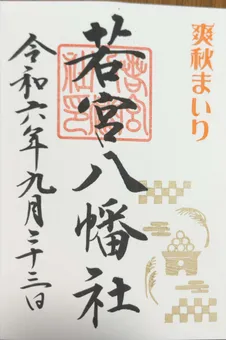 爽秋まいり
若宮八幡社
令和六年九月二十三日